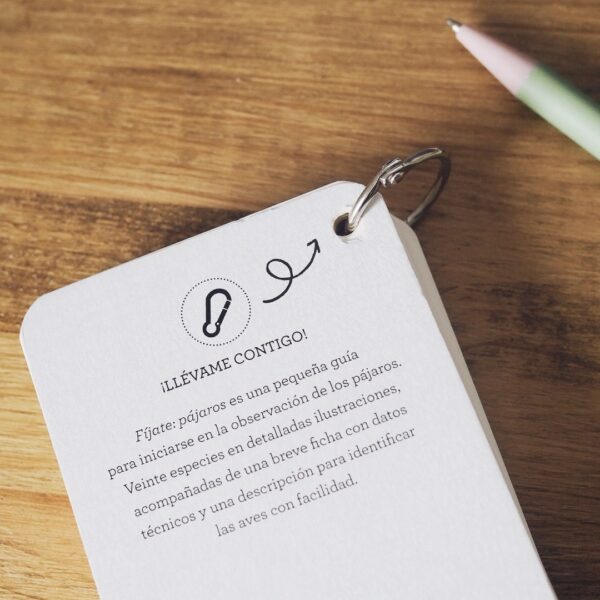 ¡LLÉVAME CONTIGO!
Fíjate: pájaros es una pequeña guía
para iniciarse en la observación de los pájaros.
Veinte especies en detalladas ilustraciones,
acompañadas de una breve ficha con datos
técnicos y una descripción para identificar
las aves con facilidad.